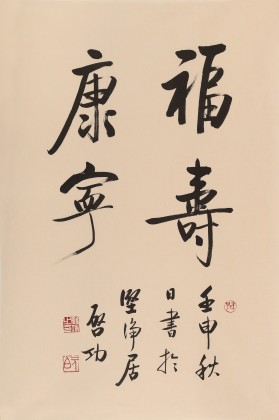 福壽
康寧
壬申秋
日書於
堅淨居
啓功